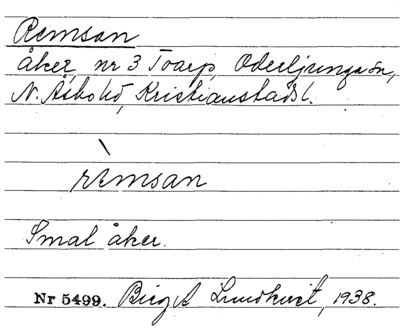 Remsan
åker, nr 3 Toarp, Oderljunga sn,
N. Åsbo hd, Kristianstads l.
ræmsan
Smal åker.
Nr 5499. Birgit Lundkvist, 1938.